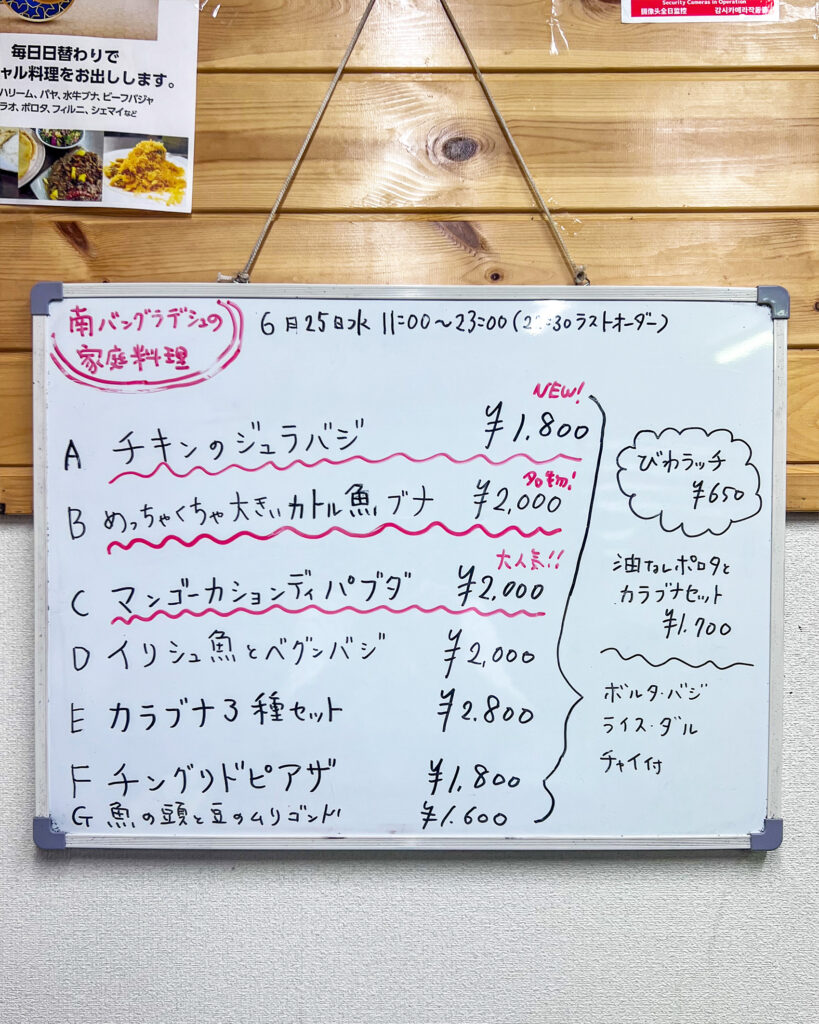 毎日日替わりで
ャル料理をお出しします。
ハリーム、パヤ、水牛ブナ、ビーフバジャ
ラオ、ポロタ、フィルニ、シェマイなど
Security Cameras in Operation
摄像头全日监控 감시카메라작동중
南バングラデシュの
家庭料理
6月25日水 11:00～23:00(22:30ラストオーダー)
NEW!
A チキンのジュラバジ ¥1.800
名物!
B めっちゃくちゃ大きいカトル魚ブナ ¥2,000
大人気!!
C マンゴーカションディパブダ ¥2,000
D イリシュ魚とベグンバジ ¥2,000
E カラブナ3種セット ¥2.800
F チングリドピアザ ¥1.800
G 魚の頭と豆のムリゴンド ¥1.600
びわラッチ
¥650
油なしポロタと
カラブナセット
¥1.700
ボルタ・バジ
ライス・ダル
チャイ付